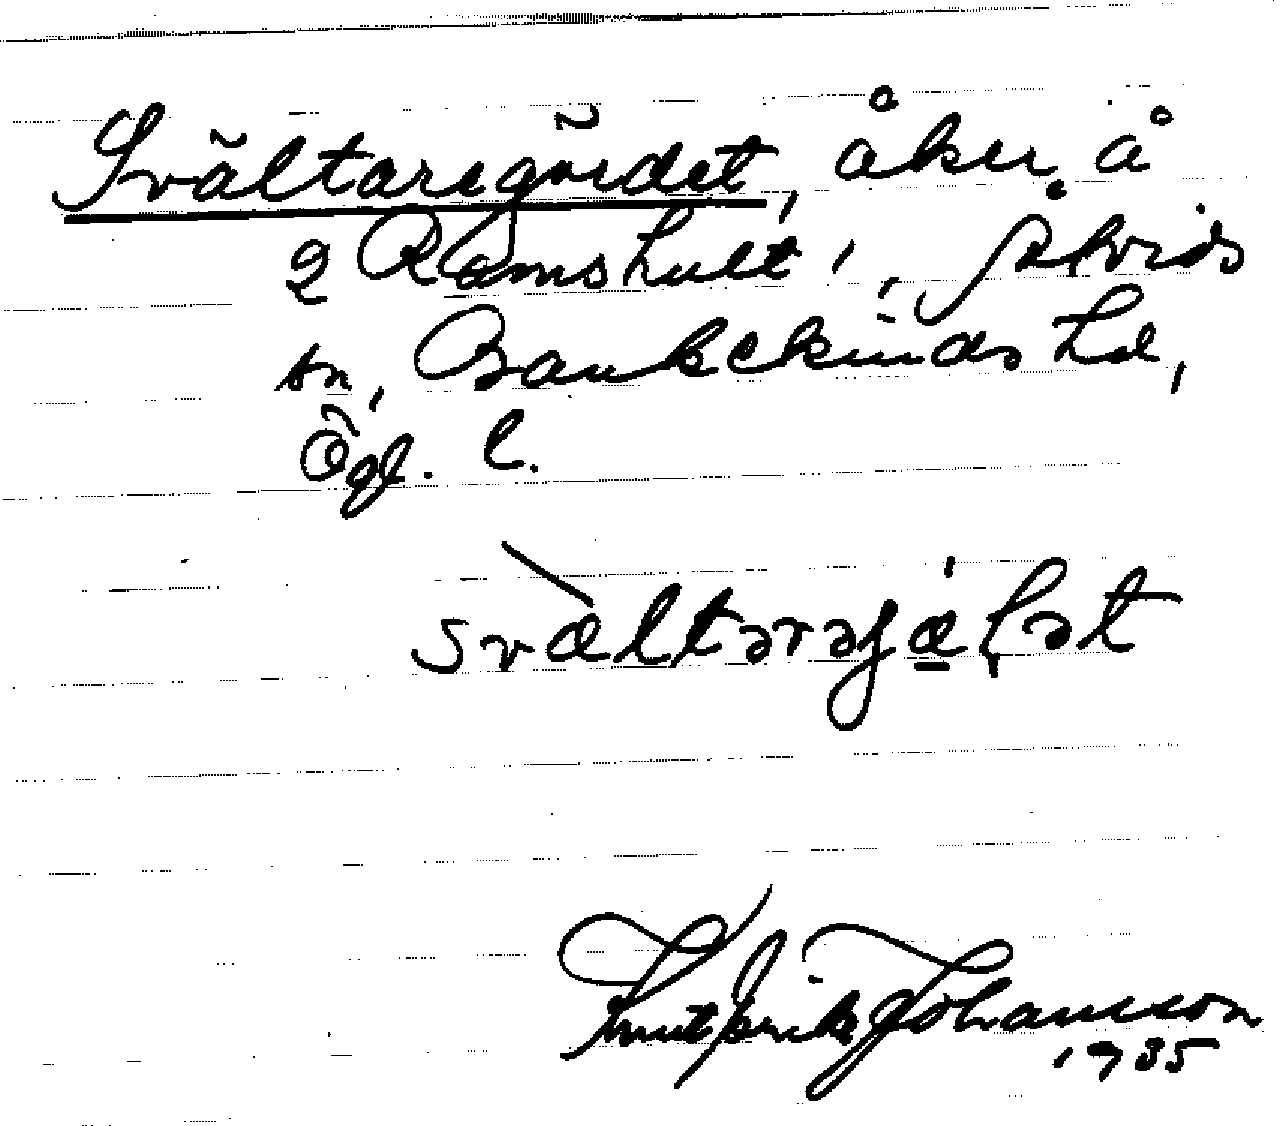 Svältaregärdet, åker å
2 Ramshult, Åtvids
sn, Bankekinds hd,
Ögl. l.
svältərəjælət
Knut Erik Johansson
1935